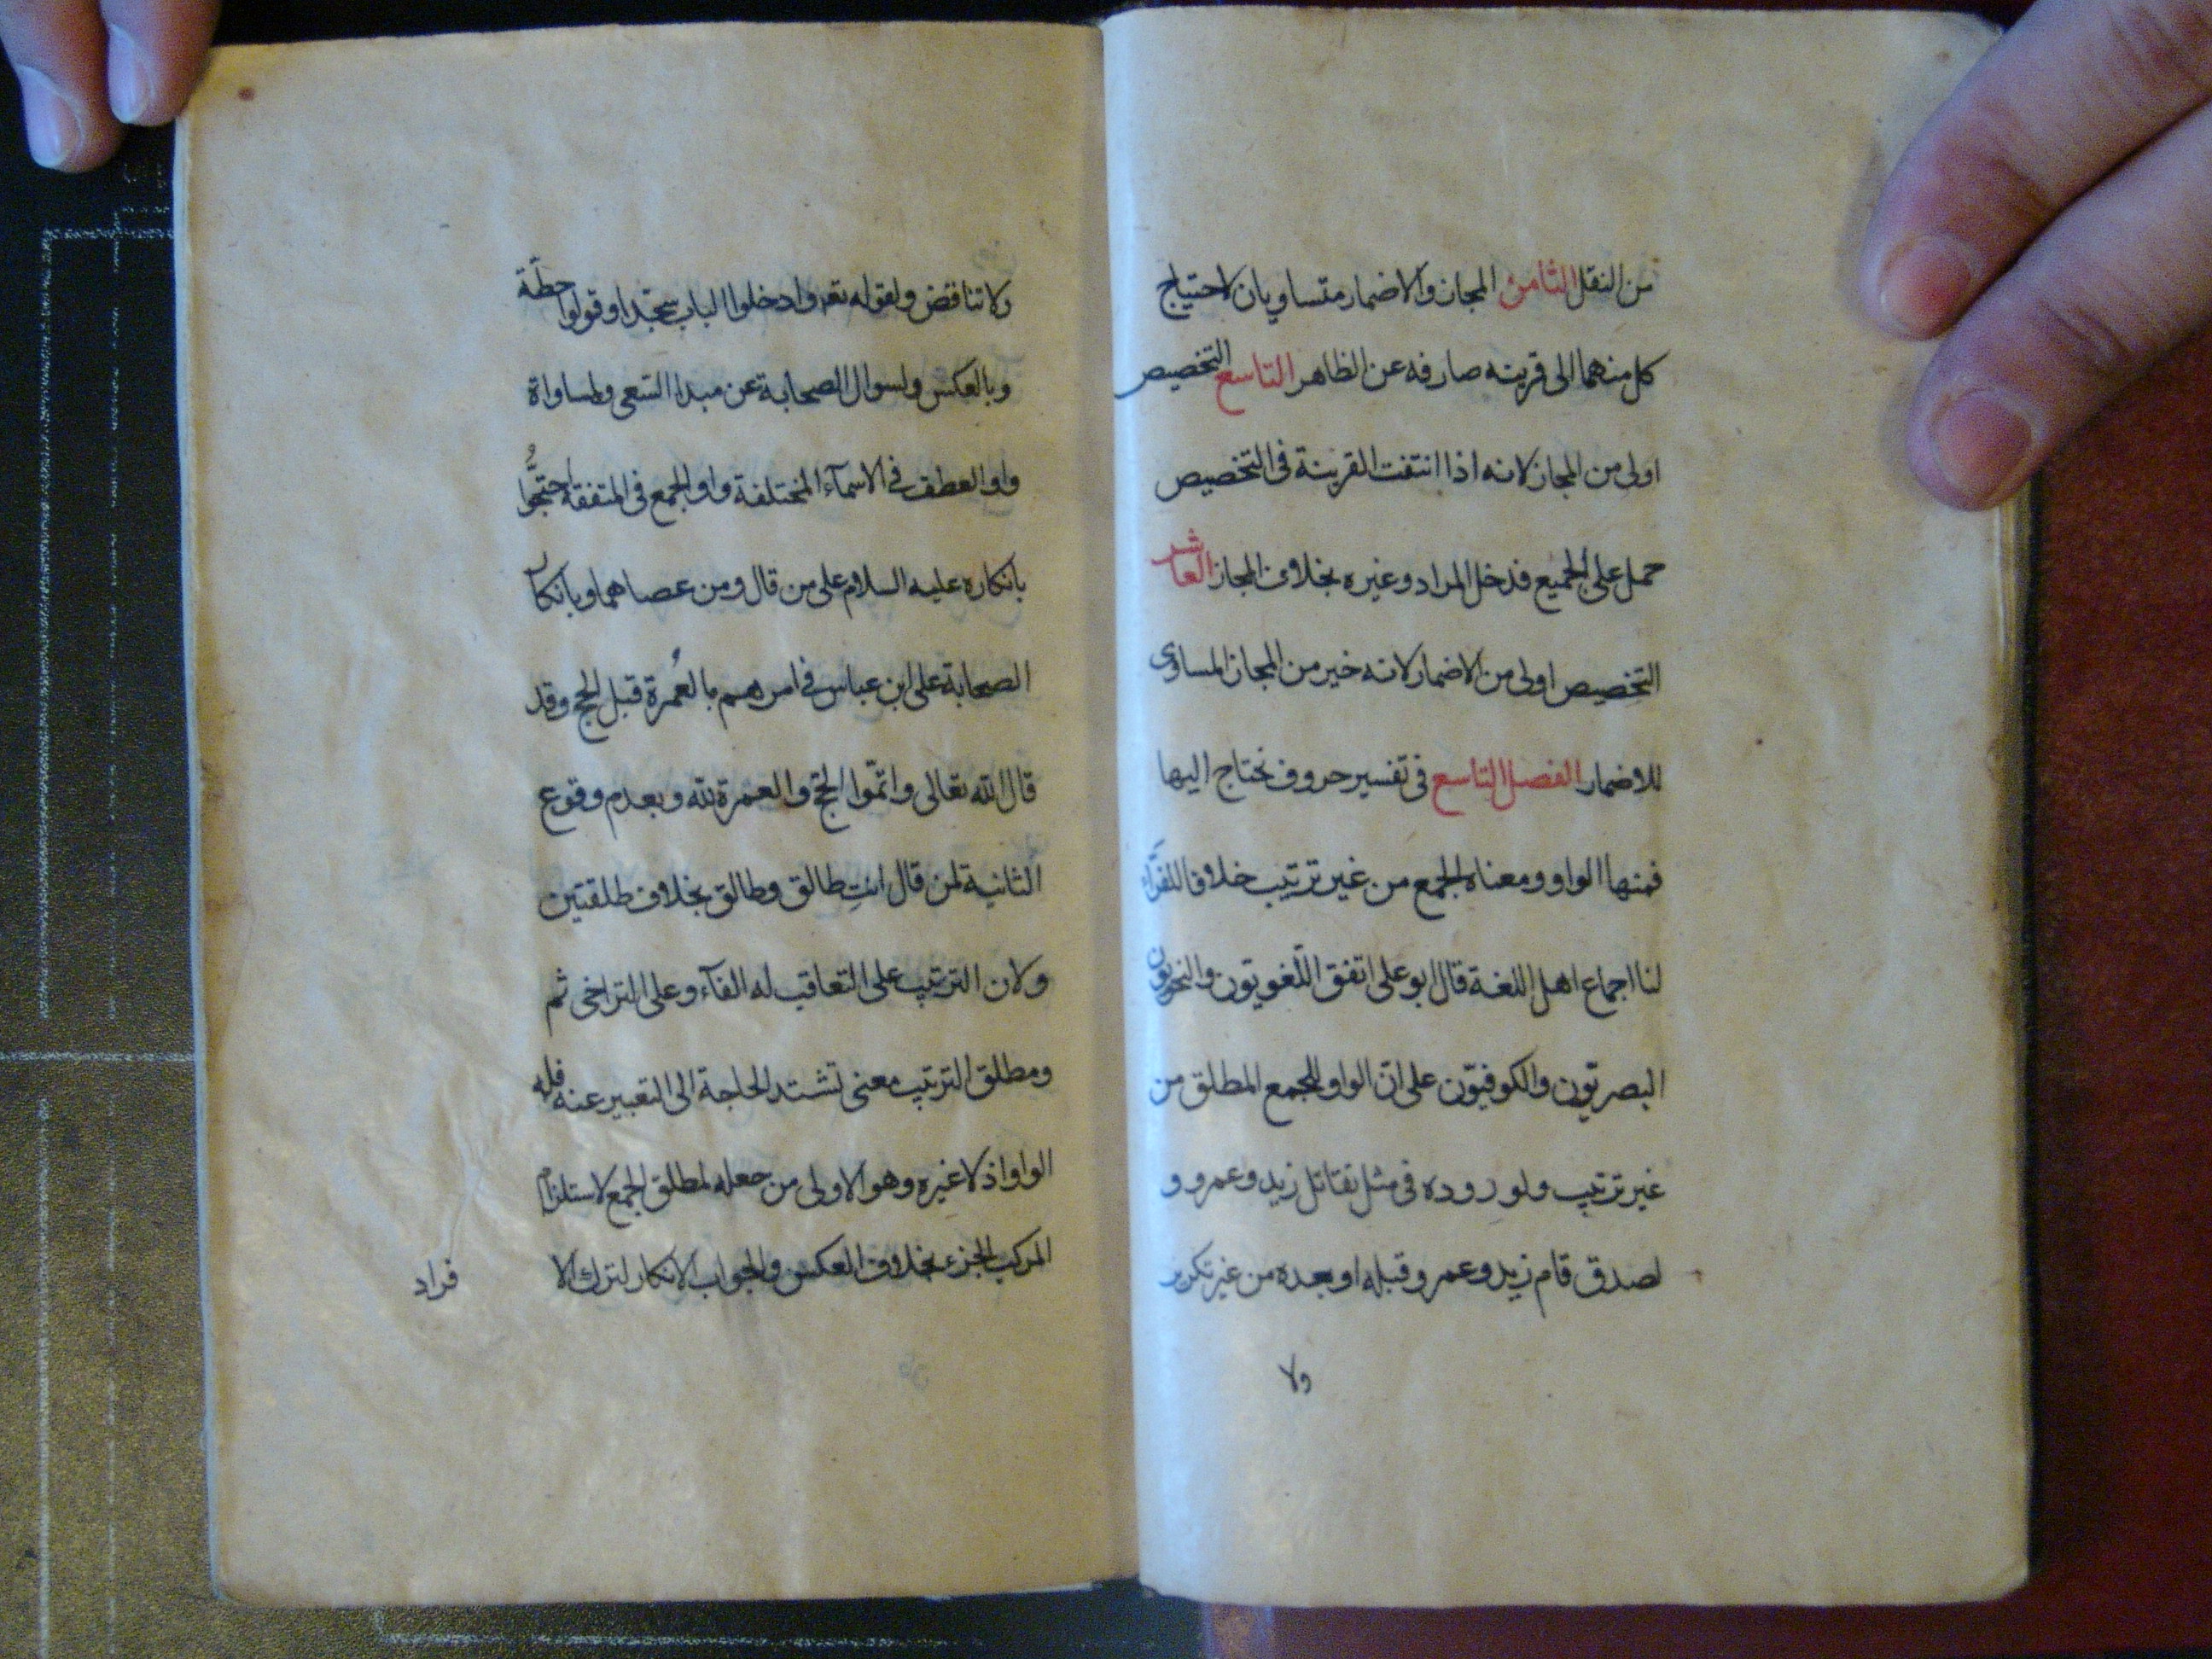 من النقل الثامن المجاز والاضمار متساويان لاحتياج
كل منهما الى قرينه صارفه عن الظاهر التاسع التخصيص
اولى من المجاز لانه اذا انتفت القرينة فى التخصيص
حمل على الجميع فدخل المراد وغيره بخلاف المجاز العاشر
التخصيص اولى من الاضمار لانه خير من المجاز المساوى
للاضمار الفصل التاسع فى تفسير حروف نحتاج اليها
فمنها الواو ومعناه الجمع من غير ترتيب خلافا للفرّاء
لنا اجماع اهل اللغة قال ابو على اتفق اللّغويّون والنحويّون
البصريّون والكوفيّون على انّ الواو للجمع المطلق من
غير ترتيب ولوروده فى مثل تقاتل زيد وعمرو و
لصدق قام زيد وعمرو قبله او بعده من غير تكرير
ولا
ولا تناقض ولقوله تعـ وادخلوا الباب سجّدا وقولوا حطّة
وبالعكس ولسوال الصحابة عن مبدا السّعى ولمساواة
واو العطف فى الاسمآء المختلفة واو الجمع فى المتفقة احتجّوا
بانكاره عليه السلام على من قال ومن عصاهما وبانكار
الصحابة على ابن عباس فى امرهم بالعُمرة قبل الحج وقد
قال الله تعالى واتمّوا الحجّ والعمرة لله وبعدم وقوع
الثانية لمن قال انتِ طالق وطالق بخلاف طلقتين
ولان الترتيب على التعاقب له الفآء وعلى التراخى ثم
ومطلق الترتيب معنى تشتد الحاجة الى التعبير عنه فله
الواو اذ لا غيره وهو الاولى من جعله لمطلق الجمع لاستلزام
المركب الجزء بخلاف العكس والجواب الانكار لترك الا
فراد